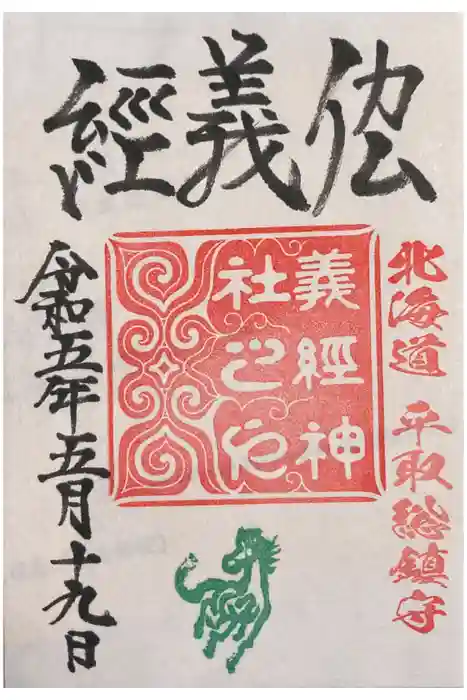 義經
北海道 平取総鎮守
義經神
社之
令和五年五月十九日